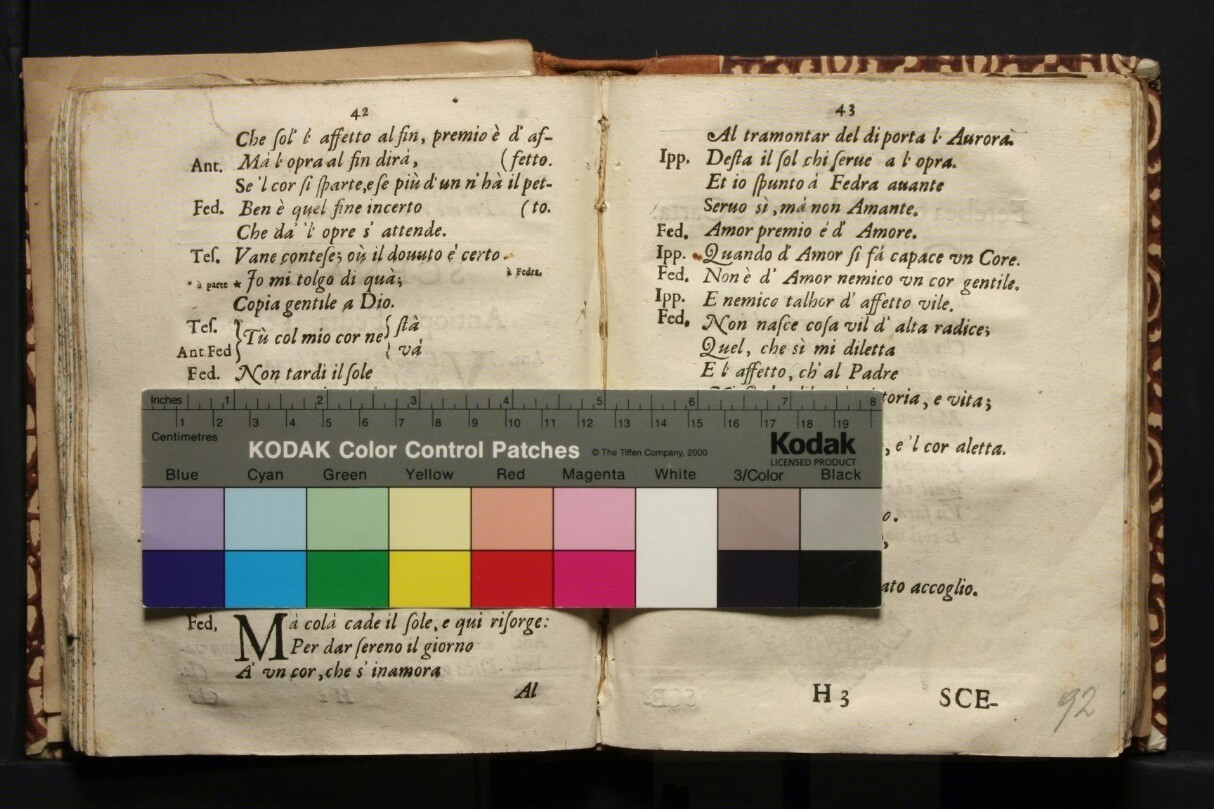 42
Che ſol' l' affetto al fin, premio è d' af-
Ant. Mà l' opra al fin dirà, (fetto.
Se 'l cor ſi ſparte, e ſe più d' un n' hà il pet-
Fed. Ben è quel fine incerto (to.
Che da' l' opre s' attende.
Teſ. Vane conteſe; où il douuto é certo.
* à parte * Jo mi tolgo di quà; à Fedra.
Copia gentile a Dio.
Teſ. } Tù col mio cor ne { ſtà
Ant. Fed { và
Fed. Non tardi il ſole
Fed, Mà colà cade il ſole, e qui riſorge:
Per dar ſereno il giorno
A' vn cor, che s' inamora
Al
43
Al tramontar del di porta l' Aurora.
Ipp. Deſta il ſol chi ſerue a l' opra.
Et io ſpunto à Fedra auante
Seruo sì, má non Amante.
Fed. Amor premio é d' Amore.
Ipp. Quando d' Amor ſi fá capace vn Core.
Fed. Non è d' Amor nemico vn cor gentile.
Ipp. E nemico talhor d' affetto vile.
Fed. Non naſce coſa vil d' alta radice;
Quel, che sì mi diletta
E l' affetto, ch' al Padre
toria, e vita;
, e 'l cor aletta.
o.
,
ato accoglio.
H 3 SCE-
92
Inches 1 2 3 4 5 6 7 8
Centimetres 1 2 3 4 5 6 7 8 9 10 11 12 13 14 15 16 17 18 19
KODAK Color Control Patches © The Tiffen Company, 2000 Kodak
LICENSED PRODUCT
Blue Cyan Green Yellow Red Magenta White 3/Color Black